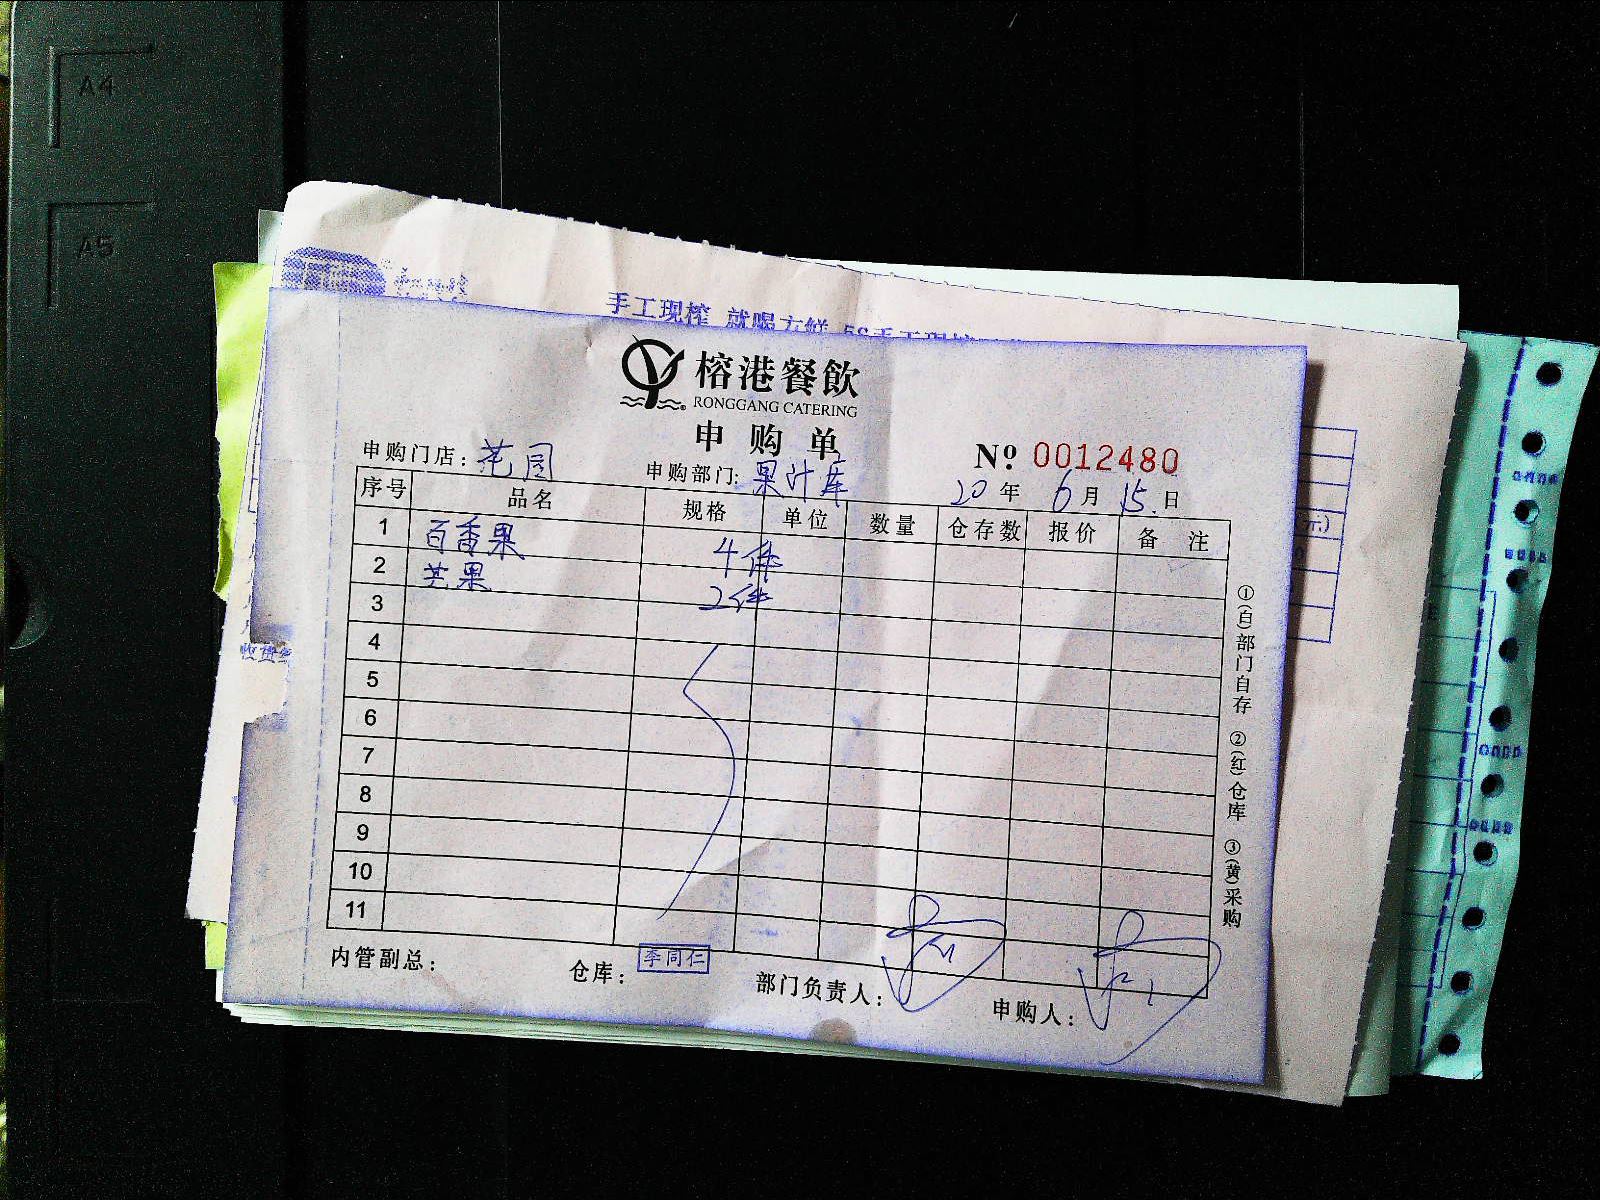 A4
A5
手工现榨
榕港餐飲
RONGGANG CATERING
申购单
申购门店：花园
申购部门：果汁库
Nº 0012480
20年 6月 15日
序号 品名 规格 单位 数量 仓存数 报价 备注
1 百香果 4件
2 芒果 2件
3
4
5
6
7
8
9
10
11
①(白)部门自存 ②(红)仓库 ③(黄)采购
内管副总：
仓库：李同仁
部门负责人：
申购人：